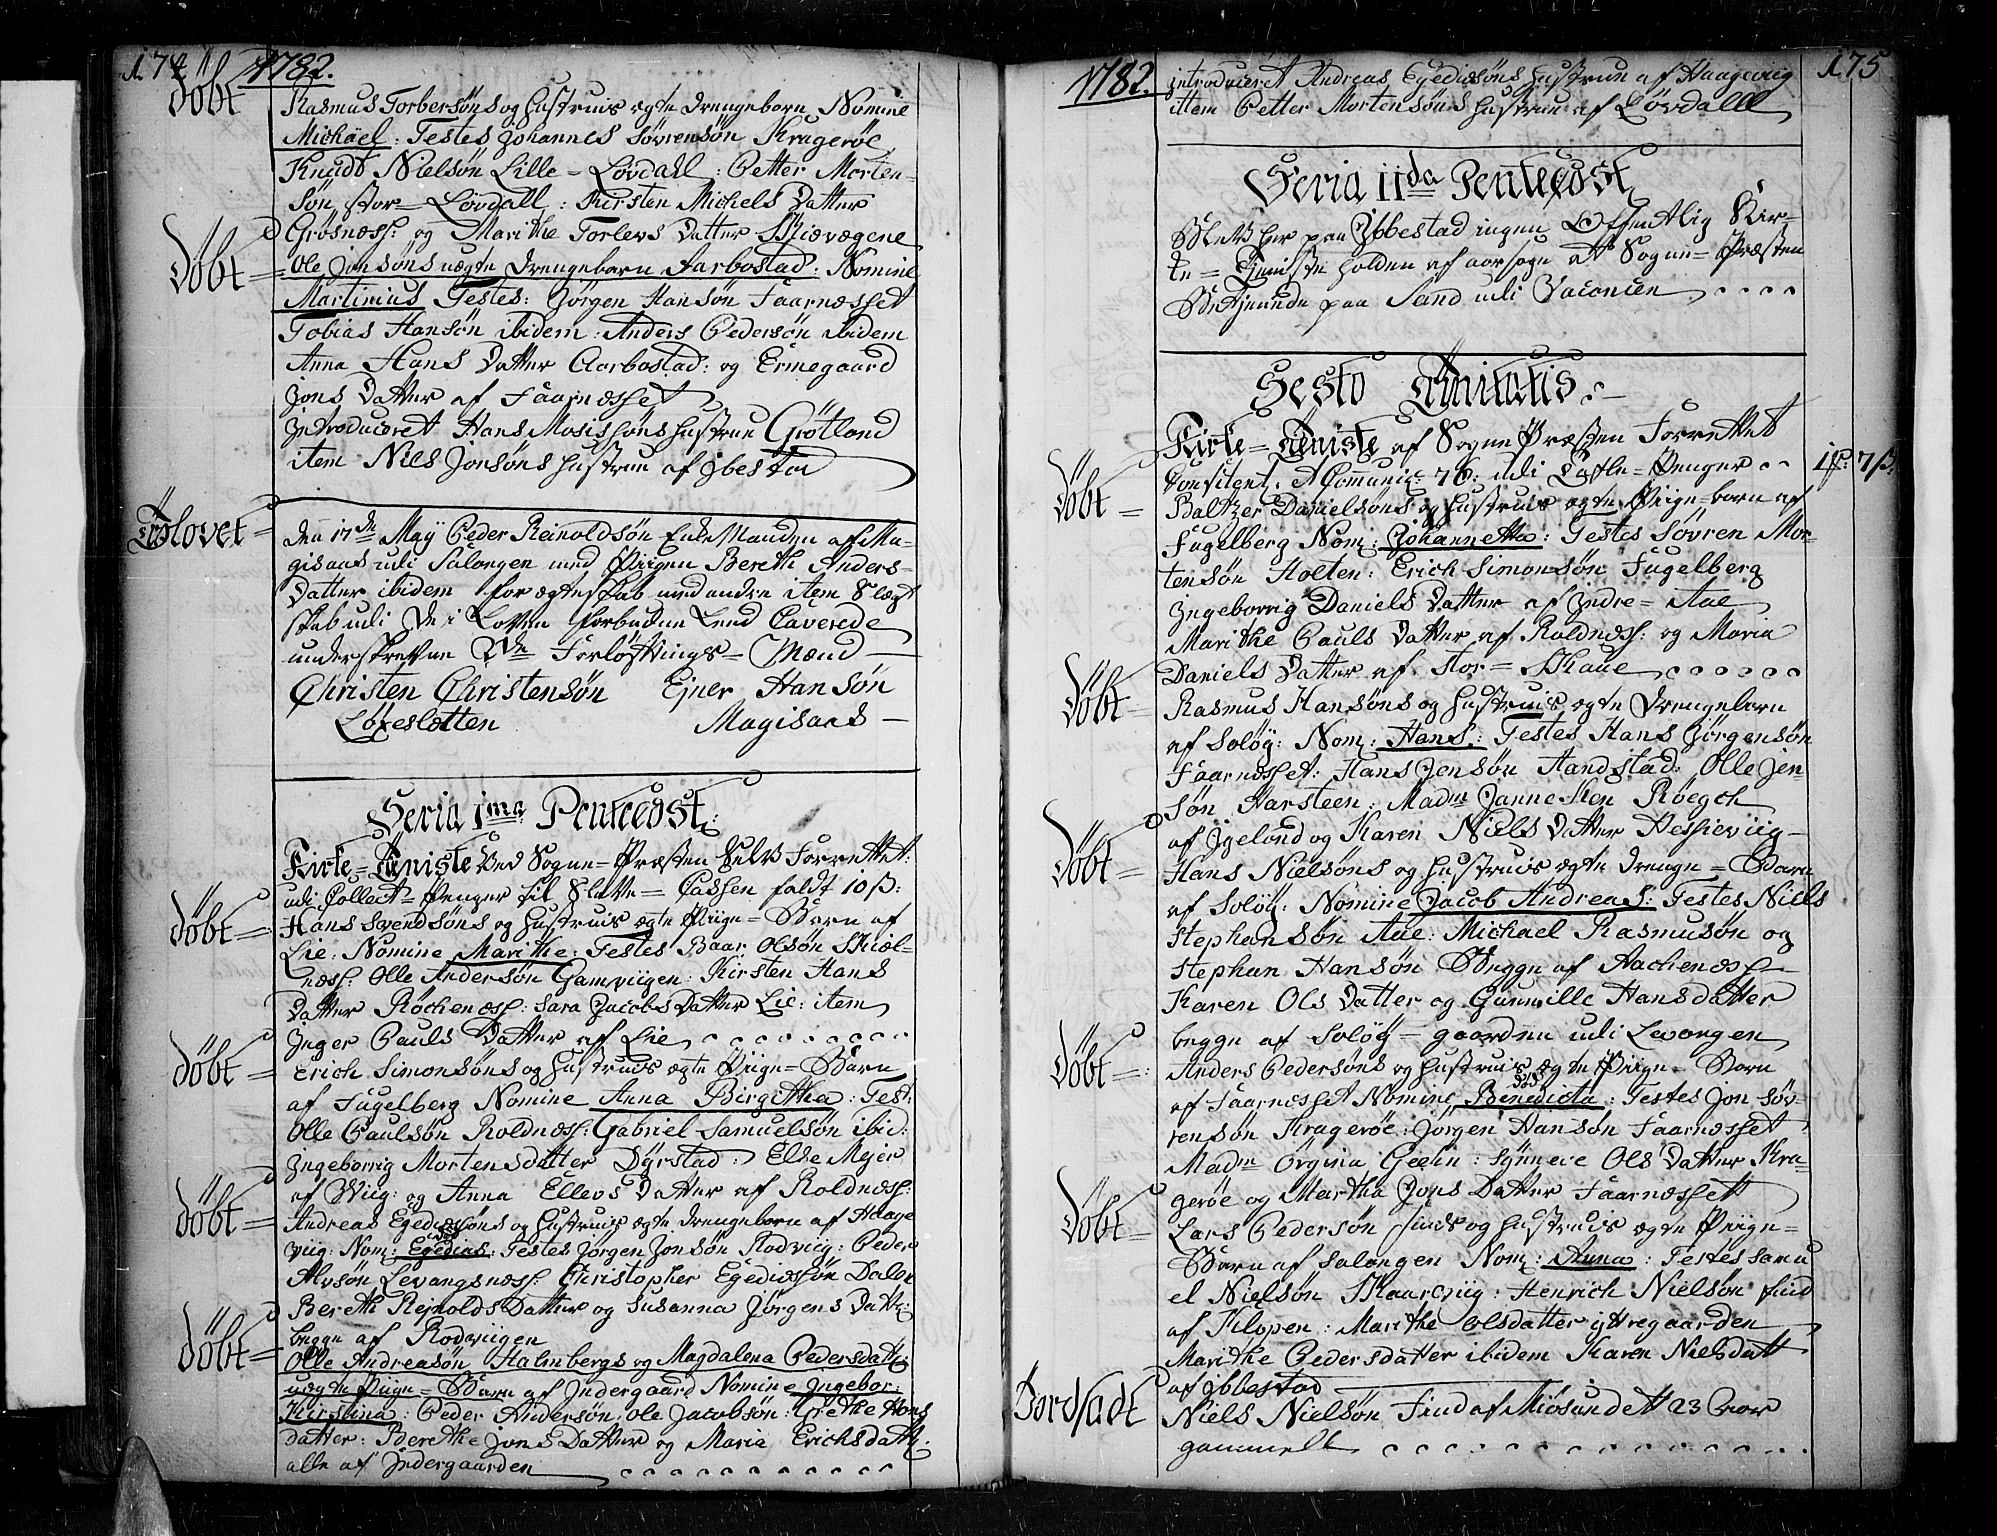 174 1782.
Döbt Rasmus Torbersöns og Hustruis ægte Drengebarn Nomine
Michäel: Testes Johannes Sövrensön Krageröe
Knudt Nielsön Lille-Lövdahl: Petter Morten-
sön stor-Lövdall: Kirsten Michels Datter
Grösnæss: og Marithe Torlevs Datter
Döbt = Ole Jonsöns uægte Drengebarn Aarbostad: Nomine
Martinius Testes: Jörgen Hansön Faarnæsset
Tobias Hansön ibidem: Anders Pedersön ibidem
Anna Hans Datter Aarbostad: og Ermegaard
Jons Datter af Faarnæsset
Introduceret Hans Mosis söns Hustrue Grötland
item Niels Jonsöns Hustrue af Ibestad
Trolovet = Den 17de May Peder Reinoldsön Enke Manden af Ma-
gisaas udi Salangen med Piigen Bereth Anders-
Datter ibidem for ægteskab med andre item Slægt
skab udi De i Loven forbudne Leed Caverede
underskrevne 2de Forlöftnings-Mænd
Christen Christensön Ejner Hansön
Löxeslætten Magisaas
Feria 1ma Pentecost:
Kirke-Tieniste Ved Sogne-Præsten Selv Forrettet:
udi Collect-Penger til Slutte-Cassen faldt 10 ß:
Döbt = Hans Svendsöns og Hustruis ægte Piige-Barn af
Lie: Nomine Marithe: Testes Baar Olsön Skiæl-
næss: Olle Andersön Gamviigen: Kirsten Hans
Datter Röchenæss: Sara Jacobs Datter Lie: item
Inger Pauls Datter af Lie
Döbt = Erich Simonsöns og Hustruis ægte Piige-Barn
af Fugelberg Nomine Anna Birgitha: Test:
Olle Paulsön Roldnæss: Gabriel Samuelsön ibid:
Ingeborrig Mortensdatter Dyrstad: Else Mejer
af Wiig: og Anna Ellevs Datter af Roldnæss:
Döbt = Andreas Egediæsöns og Hustruis ægte Drengebarn af Haage
viig: Nom: Egedius: Testes Jörgen Jonsön Rodviig: Peder
Alvsön Levangsnæss: Christopher Egediæsön Dalen
Berethe Rejnolds Datter og Susanna Jörgens Datt:
begge af Rodviigen
Döbt = Olle Andreasön Halmbergs og Magdalena Pedersdatt:
uægte Piige-Barn af Indergaard Nomine Ingebor:
Kirstina: Peder Andersön, Ole Jacobsön: Grethe Hans
datter: Berethe Jons Datter og Maria Erichsdatt:
alle af Indergaarden
1782. 175
introduceret Andreas Egediæsöns Hustrue af Haageviig
item Petter Mortensöns Hustrue af Lövdalll
Feria IIda Pentecost
Blev her paa Ibbestad ingen Offentlig Kir-
ke-Tieniste holden af aarsage at Sogne-Præsten
Betjenede paa Sand udi Vacancen
Festo Trinitatis:
Kirke-Tieniste af Sogne Præsten Forrettet
Confitent. & Comunic: 76: udi Tavle-Penger 7 ß:
Döbt = Baltzer Danielsöns og Hustruis ægte Piige-barn af
Fugelberg Nom: Johannetta: Testes Sövren Mor-
tensön Holten: Erich Simonsön Fugelberg
Ingeborrig Daniels Datter af Indre-Aae
Marithe Pauls Datter af Roldnæss: og Maria
Daniels Datter af stor-
Döbt = Rasmus Hansöns og Hustruis ægte Drengebarn
af Solöy: Nom: Hans: Testes Hans Jörgensön
Faarnæsset: Hans Jensön Aandstad: Olle Jen-
sön Harsteen: Madm Janneken Röegch
af Igeland og Karen Niels Datter Hessieviig
Döbt = Hans Nielsöns og Hustruis ægte Drenge-Barn
af Solöy: Nomine Jacob Andreas: Testes Niels
Stephansön Aae: Michael Rasmusön og
Stephan Hansön Begge af Aachenæss
Karen Ols Datter og Gunnille Hansdatter
begge af Solöy-gaarden udi Levangen
Döbt = Anders Pedersöns og Hustruis ægte Piige-Barn
af Faarnæsset Nomine Benedicta: Testes Jon Söv-
rensön Krageröe: Jörgen Hansön Faarnæsset
Madm Örgina Geelin: Synneve Ols Datter Kra-
geröe og Martha Jons Datter Faarnæsset
Döbt = Lars Pedersön Finds og Hustruis ægte Piige-
Barn af Salangen Nom: Anna: Testes Samu
el Nielsön Skaarviig: Henrich Nielsön Find
af Klopen: Marithe Olsdatter yttregaarden
Marithe Pedersdatter ibidem Karen Nielsdatt
af Ibbestad
Jordsadt Niels Nielsön Find af Miösundett 23 Aar
gammell